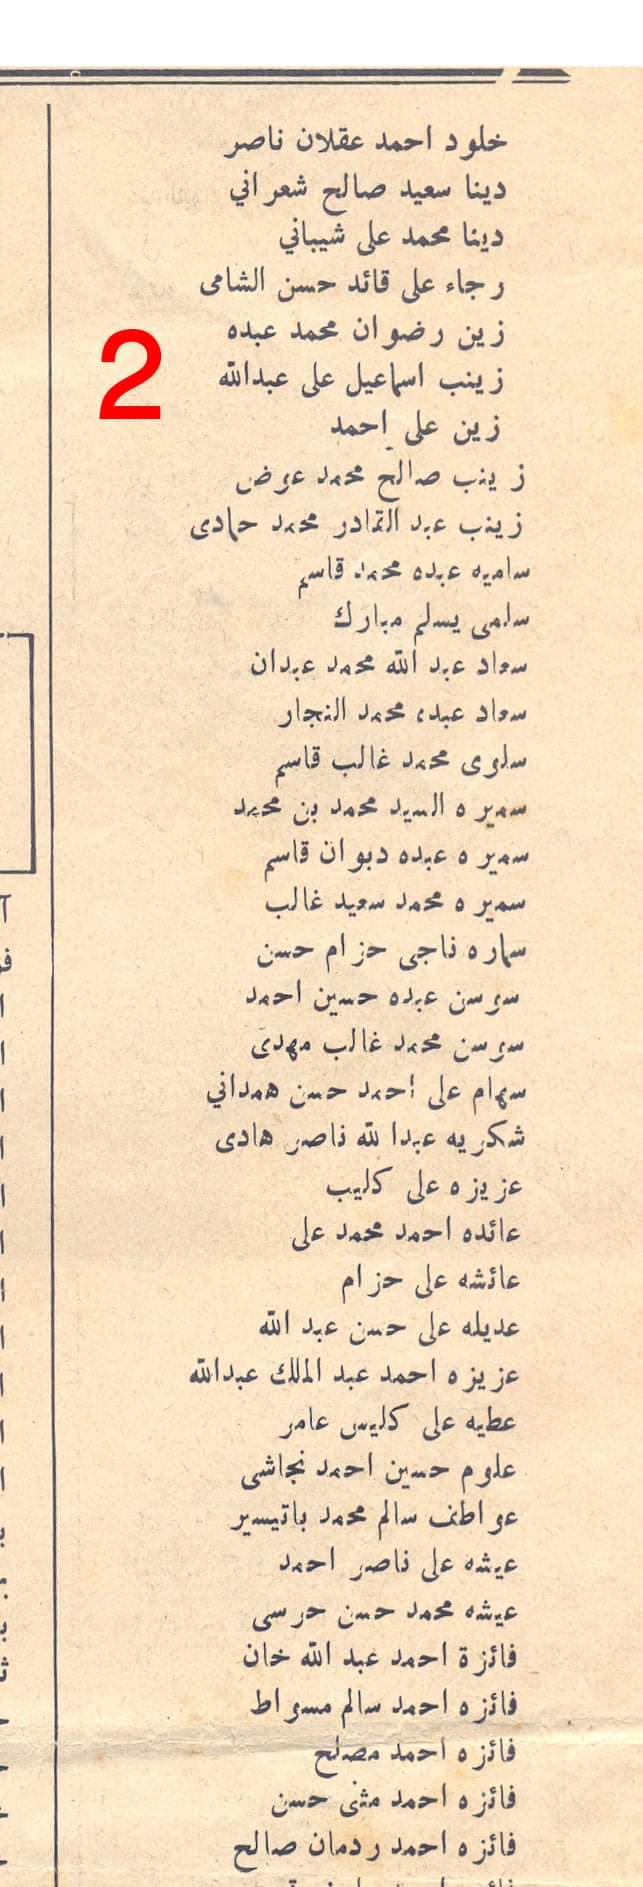 خلود احمد عقلان ناصر
دينا سعيد صالح شعراني
دينا محمد على شيباني
رجاء على قائد حسن الشامى
زين رضوان محمد عبده
2
زينب اسماعيل على عبدالله
زين على احمد
زينب صالح محمد عوض
زينب عبد القادر محمد حمادى
ساميه عبده محمد قاسم
سلمى يسلم مبارك
سعاد عبد الله محمد عبدان
سعاد عبده محمد النجار
سلوى محمد غالب قاسم
سميره السيد محمد بن محمد
سميره عبده دبوان قاسم
سميره محمد سعيد غالب
سماره ناجى حزام حسن
سوسن عبده حسين احمد
سوسن محمد غالب مهدى
سهام على احمد حسن همداني
شكريه عبدا لله ناصر هادى
عزيزه على كليب
عائده احمد محمد على
عائشه على حزام
عديله على حسن عبد الله
عزيزه احمد عبد الملك عبدالله
عطيه على كليس عامر
علوم حسين احمد نجاشى
عواطف سالم محمد باتيسير
عيشه على ناصر احمد
عيشه محمد حسن حرسى
فائزة احمد عبد الله خان
فائزه احمد سالم مسواط
فائزه احمد مصلح
فائزه احمد مثنى حسن
فائزه احمد ردمان صالح